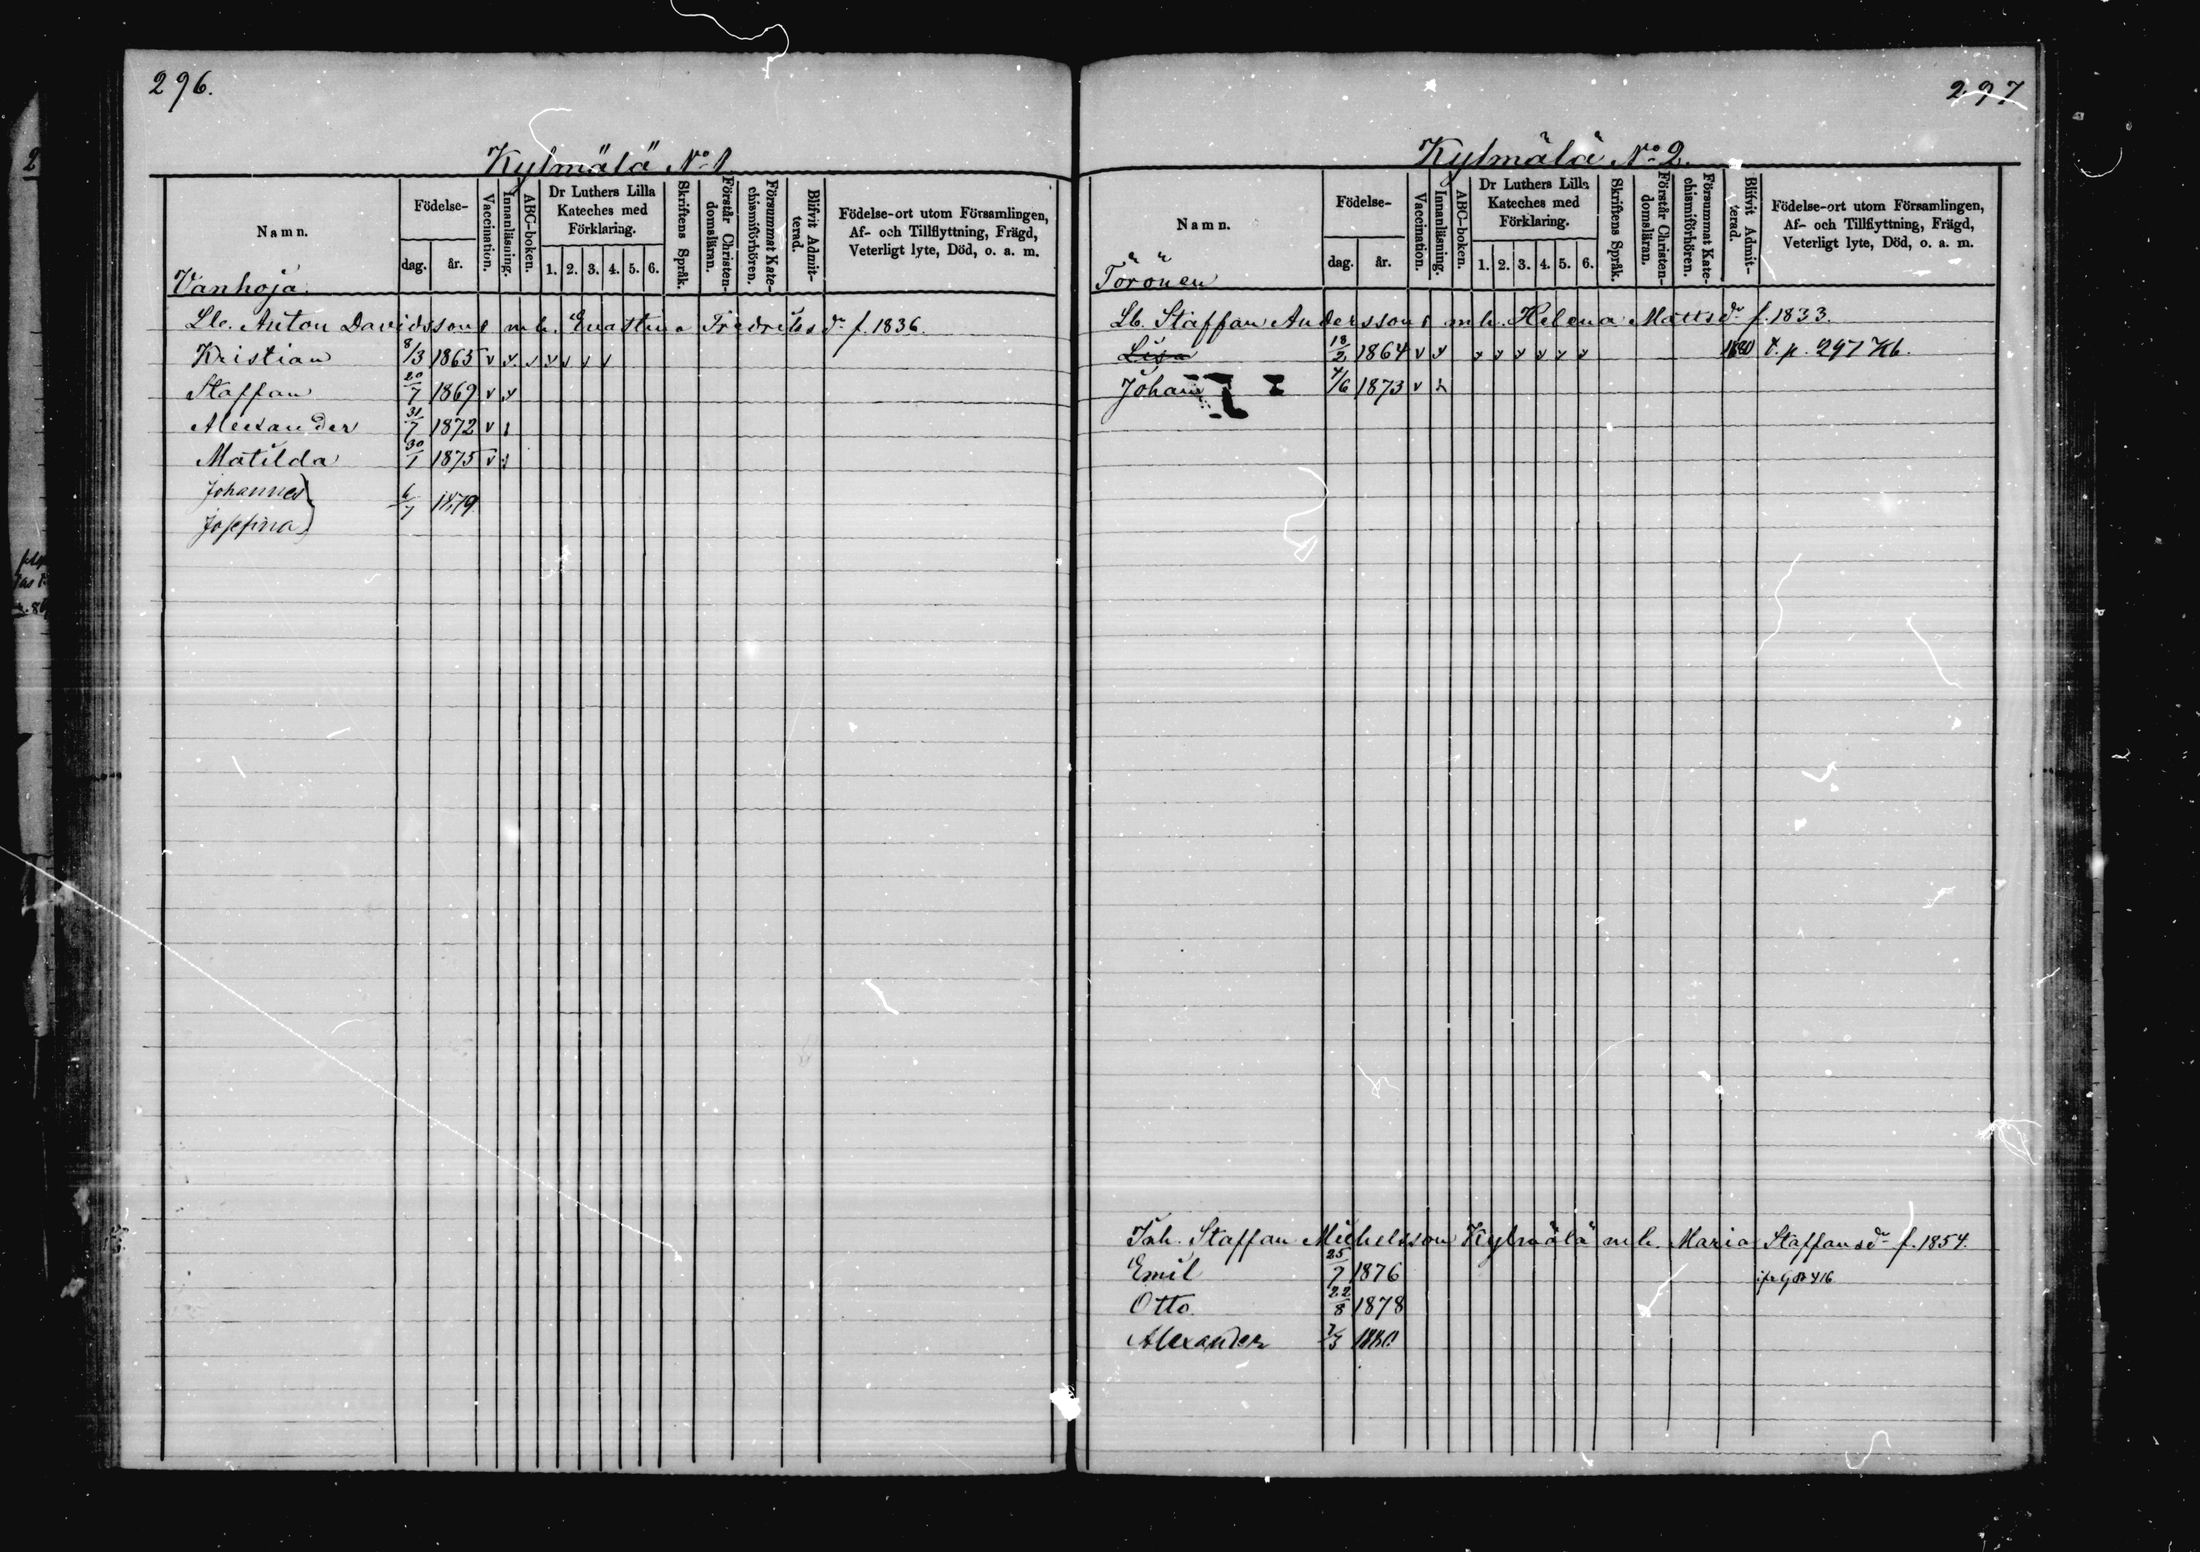 296.
Kylmälä No 1
Namn.
Födelse-
dag.
år.
Vaccination.
Innanläsning.
ABC-boken.
Dr Luthers Lilla Kateches med Förklaring.
1. 2. 3. 4. 5. 6.
Skriftens Språk.
Förstår Christendomsläran.
Försummat Katechismiförhören.
Blifvit Admitterad.
Födelse-ort utom Församlingen,
Af- och Tillflyttning, Frägd,
Veterligt lyte, Död, o. a. m.
Vanhoja.
Anton Davidssons m h. Evastina Fredriksdr f. 1836.
Kristian 8/3 1865 v v v v v v v
Staffan 20/7 1869 v v
Alexander 31/7 1872 v
Matilda 30/1 1875 v
Johannes
6/7 1879
Josefina
297
Kylmälä No 2.
Namn.
Födelse-
dag.
år.
Vaccination.
Innanläsning.
ABC-boken.
Dr Luthers Lilla Kateches med Förklaring.
1. 2. 3. 4. 5. 6.
Skriftens Språk.
Förstår Christendomsläran.
Försummat Katechismiförhören.
Blifvit Admitterad.
Födelse-ort utom Församlingen,
Af- och Tillflyttning, Frägd,
Veterligt lyte, Död, o. a. m.
Törönen
Lb. Staffan Anderssons m h. Helena Mattsdr f. 1833.
Lisa 18/2 1864 v v v v v v v v 1880 t. p. 297 Kb.
Johan 4/6 1873 v
Inh. Staffan Michelsson Kylmälä m h. Maria Staffansdr f. 1854.
Emil 25/7 1876
Otto 22/8 1878
Alexander 1880